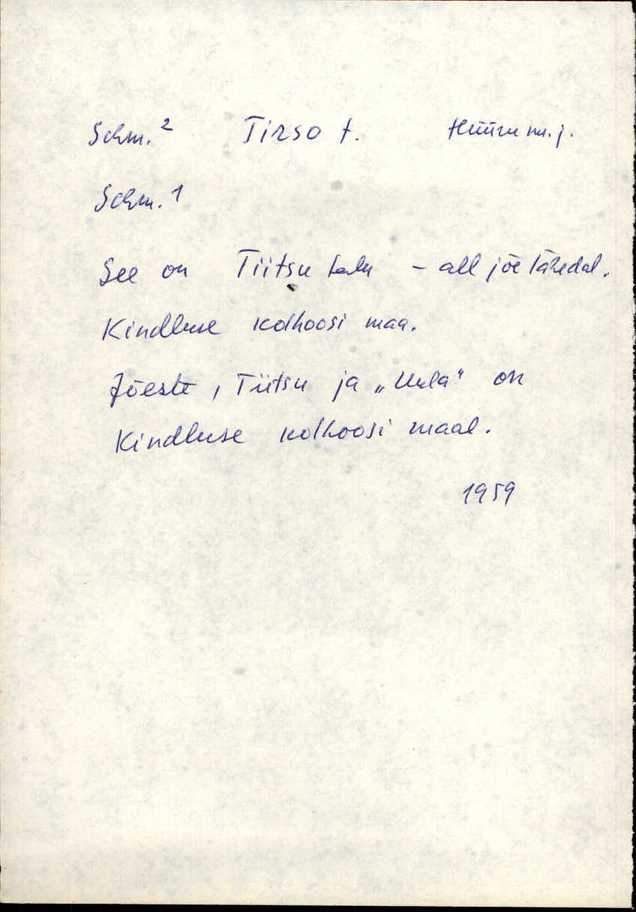 Schm.² Tirso t. Hüüru m.j.
Schm. 1
See on Tiitsu talu – all jõe lähedal.
Kindluse kolhoosi maa.
Jõeste, Tiitsu ja „Uula“ on
Kindluse kolhoosi maal.
1959